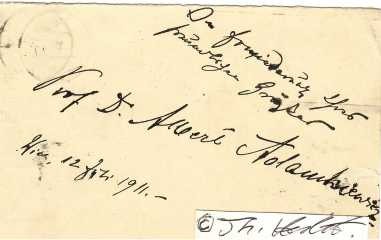 In Erwiderung Ihrer
freundlichen Grüße
Prof. Dr. Albert Adamkiewicz
Wien 12 Juli 1911.-
© Th.